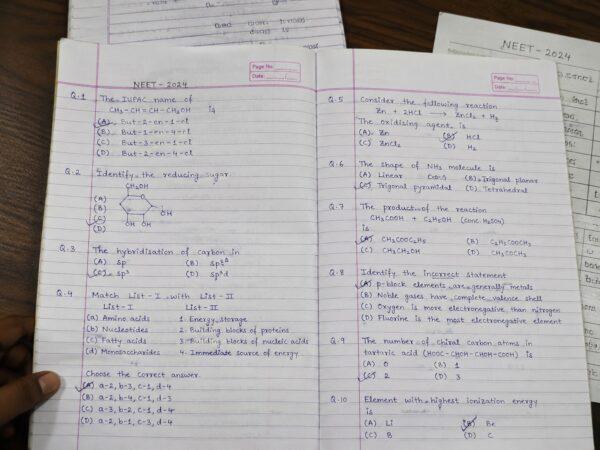 NEET - 2024
Page No.:
Date:
Q.1 The IUPAC name of
CH₃-CH=CH-CH₂OH is
(A) But-2-en-1-ol
(B) But-1-en-4-ol
(C) But-3-en-1-ol
(D) But-2-en-4-ol
Q.2 Identify the reducing sugar
CH₂OH
O
(A)
(B)
(C)
(D)
OH
OH OH
Q.3 The hybridisation of carbon in
(A) sp (B)
(C) sp³ (D) sp³d
Q.4 Match List-I with List-II
List-I List-II
(a) Amino acids 1. Energy storage
(b) Nucleotides 2. Building blocks of proteins
(c) Fatty acids 3. Building blocks of nucleic acids
(d) Monosaccharides 4. Immediate source of energy
Choose the correct answer.
(A) a-2, b-3, c-1, d-4
(B) a-2, b-4, c-1, d-3
(C) a-3, b-2, c-1, d-4
(D) a-2, b-1, c-3, d-4
Page No.:
Date:
Q.5 Consider the following reaction
Zn + 2HCl → ZnCl₂ + H₂
The oxidizing agent is
(A) Zn (B) HCl
(C) ZnCl₂ (D) H₂
Q.6 The shape of NH₃ molecule is
(A) Linear (B) Trigonal planar
(C) Trigonal pyramidal (D) Tetrahedral
Q.7 The product of the reaction
CH₃COOH + C₂H₅OH (conc. H₂SO₄)
is
(A) CH₃COOC₂H₅ (B) C₂H₅COOCH₃
(C) CH₃CH₂OH (D) CH₃COCH₃
Q.8 Identify the incorrect statement
(A) p-block elements are generally metals
(B) Noble gases have complete valence shell
(C) Oxygen is more electronegative than nitrogen
(D) Fluorine is the most electronegative element
Q.9 The number of chiral carbon atoms in
tartaric acid (HOOC-CHOH-CHOH-COOH) is
(A) 0 (B) 1
(C) 2 (D) 3
Q.10 Element with highest ionization energy
is
(A) Li (B) Be
(C) B (D) C
NEET - 2024